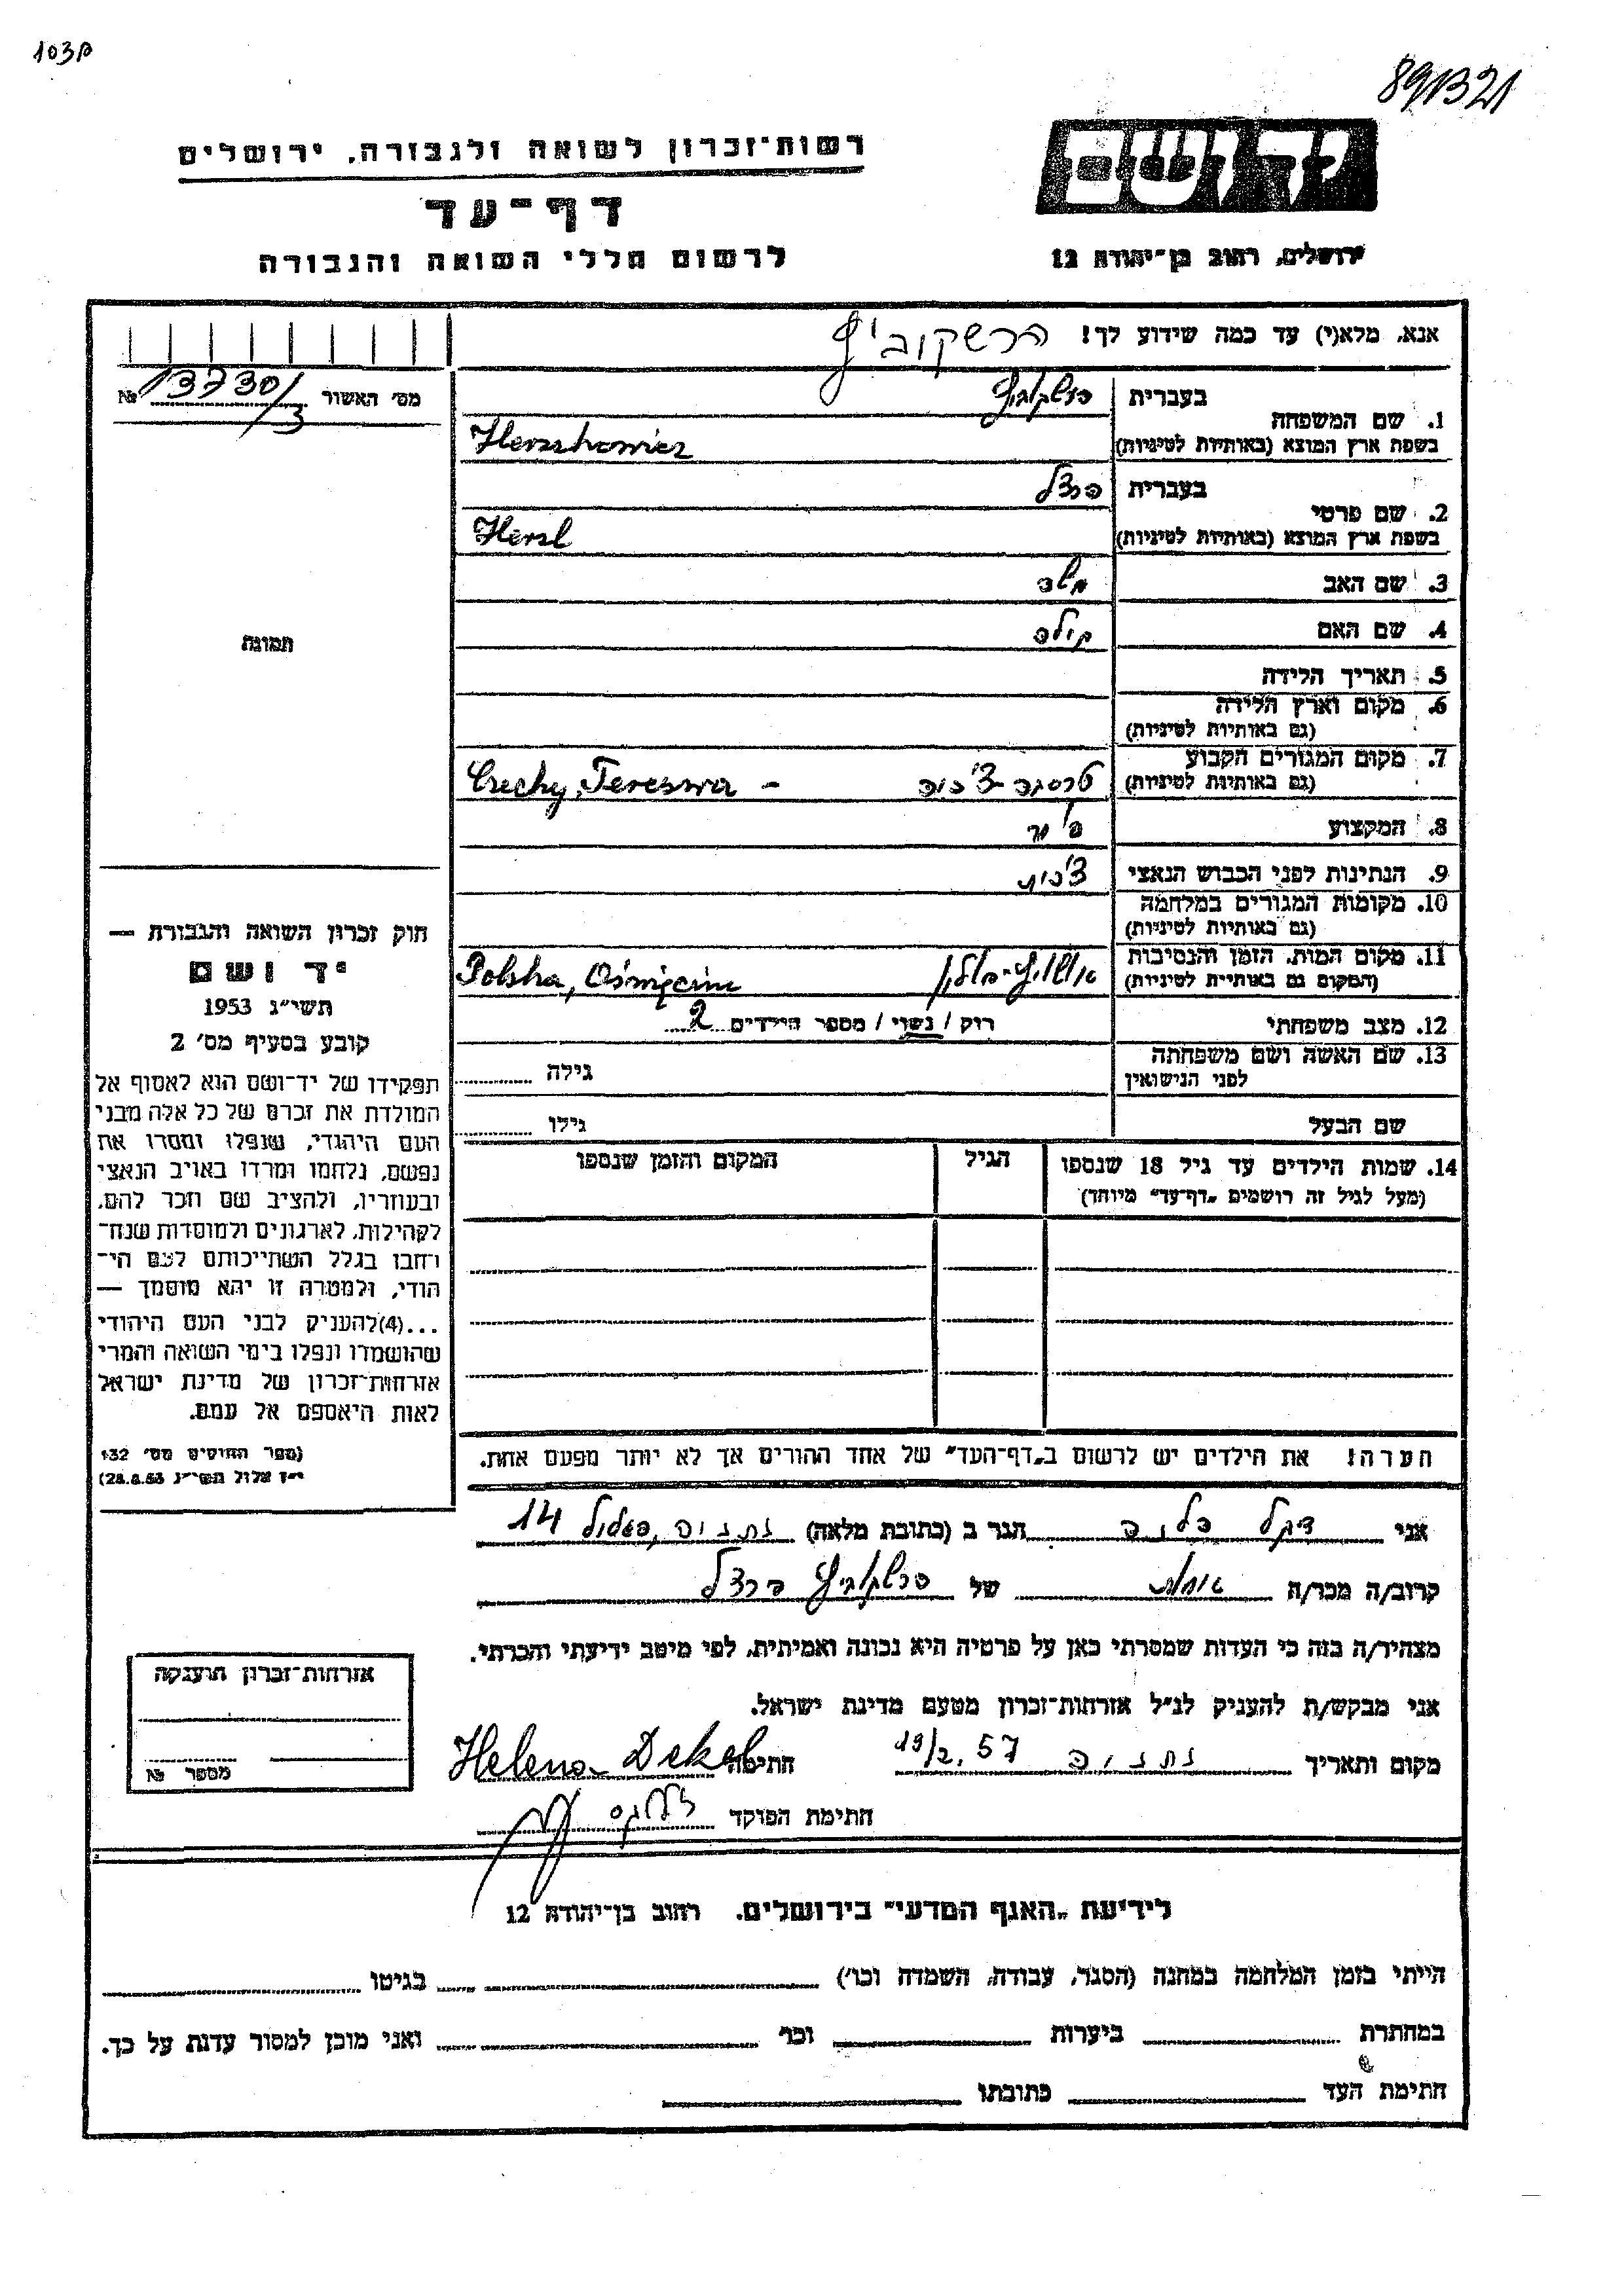 103פ
891321
יד ושם
ירושלים, רחוב בן־יהודה 12
רשות־זכרון לשואה ולגבורה, ירושלים
דף־עד
לרשום חללי השואה והגבורה
אנא, מלא(י) עד כמה שידוע לך!
הרשקוביץ
מס׳ האשור 13730/3 №
1. שם המשפחה
בעברית הרשקוביץ
בשפת ארץ המוצא (באותיות לטיניות) Herszkowicz
2. שם פרטי
בעברית הרצל
בשפת ארץ המוצא (באותיות לטיניות) Herzl
3. שם האב משה
4. שם האם
5. תאריך הלידה
6. מקום וארץ הלידה
(גם באותיות לטיניות)
7. מקום המגורים הקבוע
(גם באותיות לטיניות) טרסווה צ׳כיה - Czechy, Tereswa
8. המקצוע
9. הנתינות לפני הכבוש הנאצי צ׳כית
10. מקומות המגורים במלחמה
(גם באותיות לטיניות)
11. מקום המות, הזמן והנסיבות
(המקום גם באותיית לטיניות) אושויץ-פולין Polska, Oświęcim
12. מצב משפחתי רוק / נשוי / מספר הילדים 2
13. שם האשה ושם משפחתה
לפני הנישואין גילה
שם הבעל גילו
14. שמות הילדים עד גיל 18 שנספו
(מעל לגיל זה רושמים „דף־עד״ מיוחד)
הגיל
המקום והזמן שנספו
הערה! את הילדים יש לרשום ב„דף־העד״ של אחד ההורים אך לא יותר מפעם אחת.
תמונה
חוק זכרון השואה והגבורה —
יד ושם
תשי״ג 1953
קובע בסעיף מס׳ 2
תפקידו של יד־ושם הוא לאסוף אל
המולדת את זכרם של כל אלה מבני
העם היהודי, שנפלו ומסרו את
נפשם, נלחמו ומרדו באויב הנאצי
ובעוזריו, ולהציב שם וזכר להם,
לקהילות, לארגונים ולמוסדות שנח־
רחבו בגלל השתייכותם לעם הי־
הודי, ולמטרה זו יהא מוסמך —
...(4)להעניק לבני העם היהודי
שהושמדו ונפלו בימי השואה והמרי
אזרחות־זכרון של מדינת ישראל
לאות היאספם אל עמם.
(ספר החוקים מס׳ 132
י״ז אלול תשי״ג 28.8.53)
אני דקל הלנה הגר ב (כתובת מלאה) נתניה, 14
קרוב/ה מכר/ה אחות של הרשקוביץ הרצל
מצהיר/ה בזה כי העדות שמסרתי כאן על פרטיה היא נכונה ואמיתית, לפי מיטב ידיעתי והכרתי.
אני מבקש/ת להעניק לנ״ל אזרחות־זכרון מטעם מדינת ישראל.
מקום ותאריך נתניה 19/2.57 חתימה Helena Dekel
חתימת הפוקד
אזרחות־זכרון הוענקה
מספר №
לידיעת „האגף המדעי״ בירושלים, רחוב בן־יהודה 12
הייתי בזמן המלחמה במחנה (הסגר, עבודה, השמדה וכו׳) בגיטו
במחתרת ביערות וכו׳ ואני מוכן למסור עדות על כך.
חתימת העד כתובתו